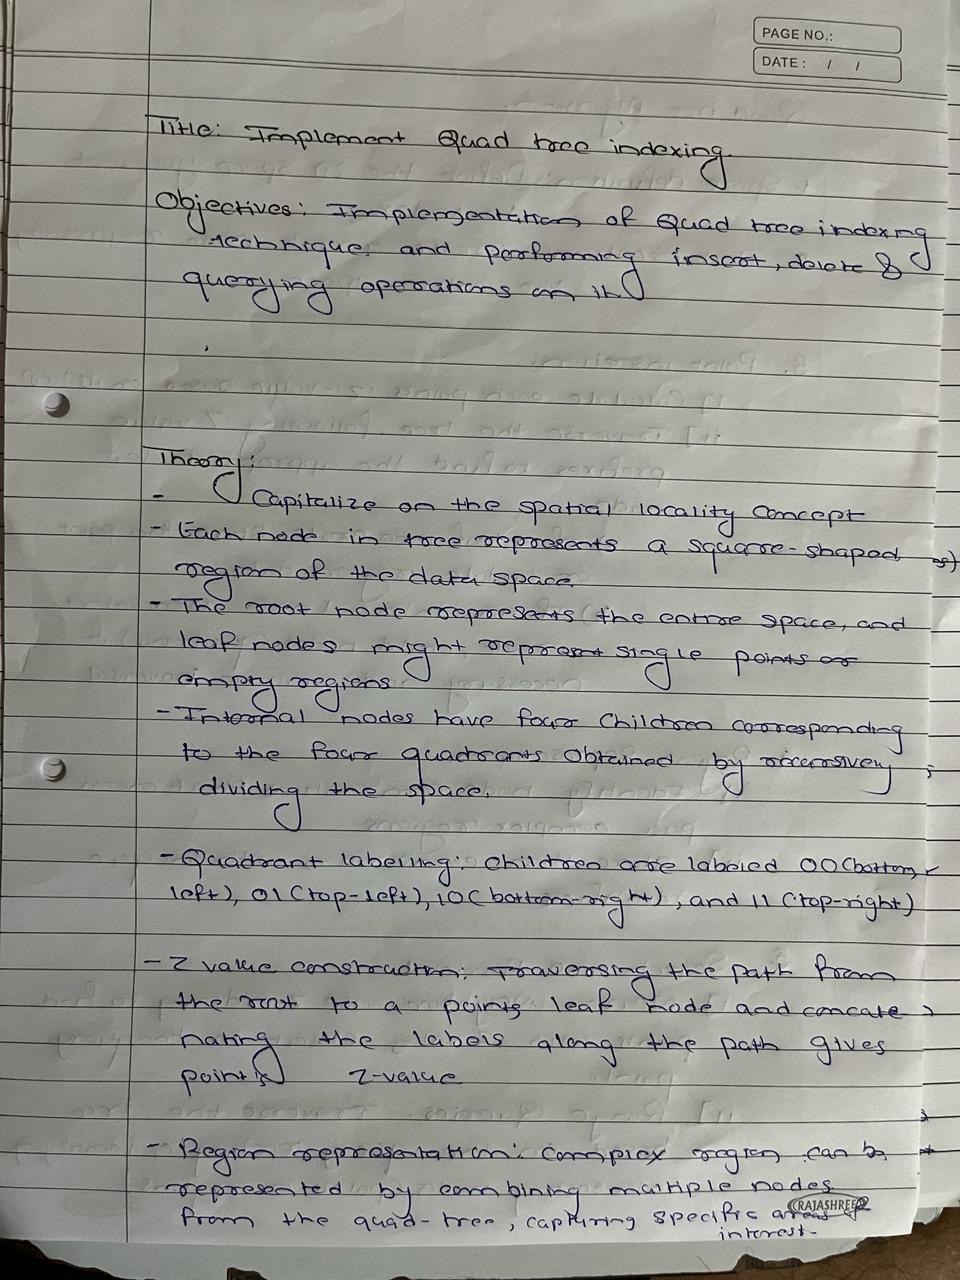 PAGE NO.:
DATE: / /
Title: Implement Quad tree indexing
Objectives: Implementation of Quad tree indexing
technique and performing insert, delete &
querying operations on it
Theory:
- Capitalize on the spatial locality concept
- Each node in tree represents a square-shaped
region of the data space.
- The root node represents the entire space, and
leaf nodes might represent single points or
empty regions
- Internal nodes have four children corresponding
to the four quadrants obtained by recursively
dividing the space.
- Quadrant labelling: children are labeled 00 (bottom
left), 01 (top-left), 10 (bottom-right), and 11 (top-right)
- Z value construction: Traversing the path from
the root to a points leaf node and concate
nating the labels along the path gives
point's Z-value
- Region representation: complex region can be
represented by combining multiple nodes
from the quad-tree, capturing specific areas of
interest.
RAJASHREE